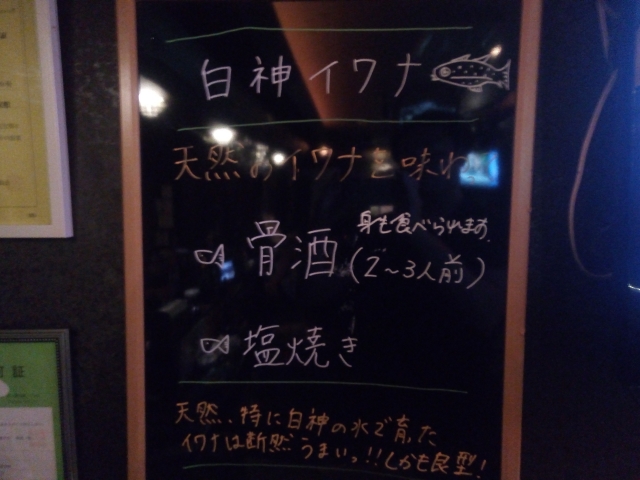 白神イワナ
天然のイワナを味わ
身も食べられます。
骨酒(2～3人前)
塩焼き
天然、特に白神の水で育った
イワナは断然うまいっ!!しかも良型!
証